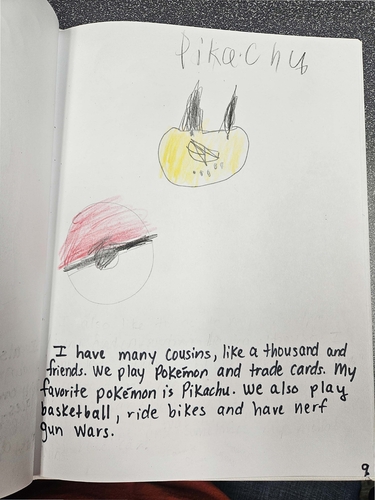 Pikachu
I have many cousins, like a thousand and
friends. We play Pokémon and trade cards. My
favorite pokémon is Pikachu. We also play
basketball, ride bikes and have nerf
gun wars.
9